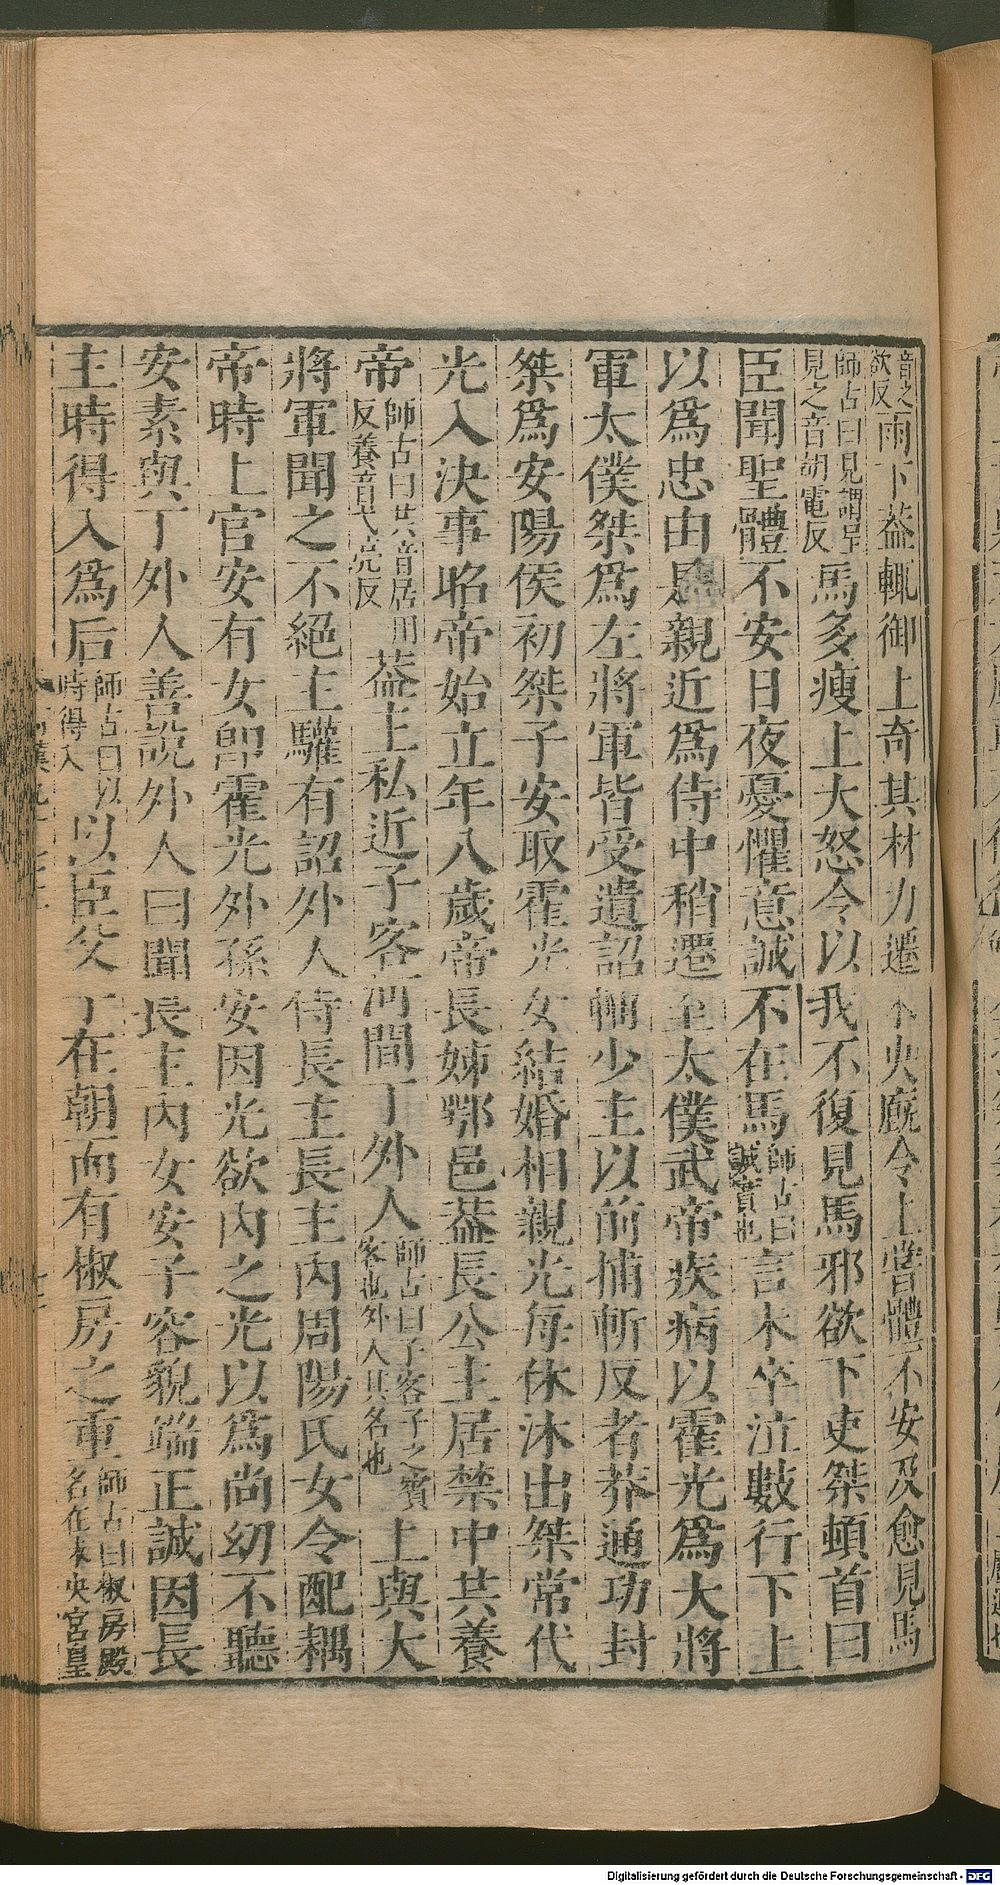 音之欲反雨下葢輒御上奇其材力遷未央廄令上嘗體不安及愈見馬
師古曰見謂呈見之音胡電反馬多瘦上大怒令以我不復見馬邪欲下吏桀頓首曰
臣聞聖體不安日夜憂懼意誠不在馬師古曰誠實也言未卒泣數行下上
以爲忠由是親近爲侍中稍遷至太僕武帝疾病以霍光爲大將
軍太僕桀爲左將軍皆受遺詔輔少主以前捕斬反者莽通功封
桀爲安陽侯初桀子安取霍光女結婚相親光每休沐出桀常代
光入決事昭帝始立年八歲帝長姊鄂邑葢長公主居禁中共養
帝師古曰共音居用反養音弋亮反葢主私近子客河間丁外人師古曰子客子之賓客也外人其名也上與大
將軍聞之不絕主驩有詔外人侍長主長主內周陽氏女令配耦
帝時上官安有女卽霍光外孫安因光欲內之光以爲尚幼不聽
安素與丁外人善說外人曰聞長主內女安子容貌端正誠因長
主時得入爲后師古曰以時得入以臣父子在朝而有椒房之重師古曰椒房殿名在未央宮皇
Digitalisierung gefördert durch die Deutsche Forschungsgemeinschaft - DFG